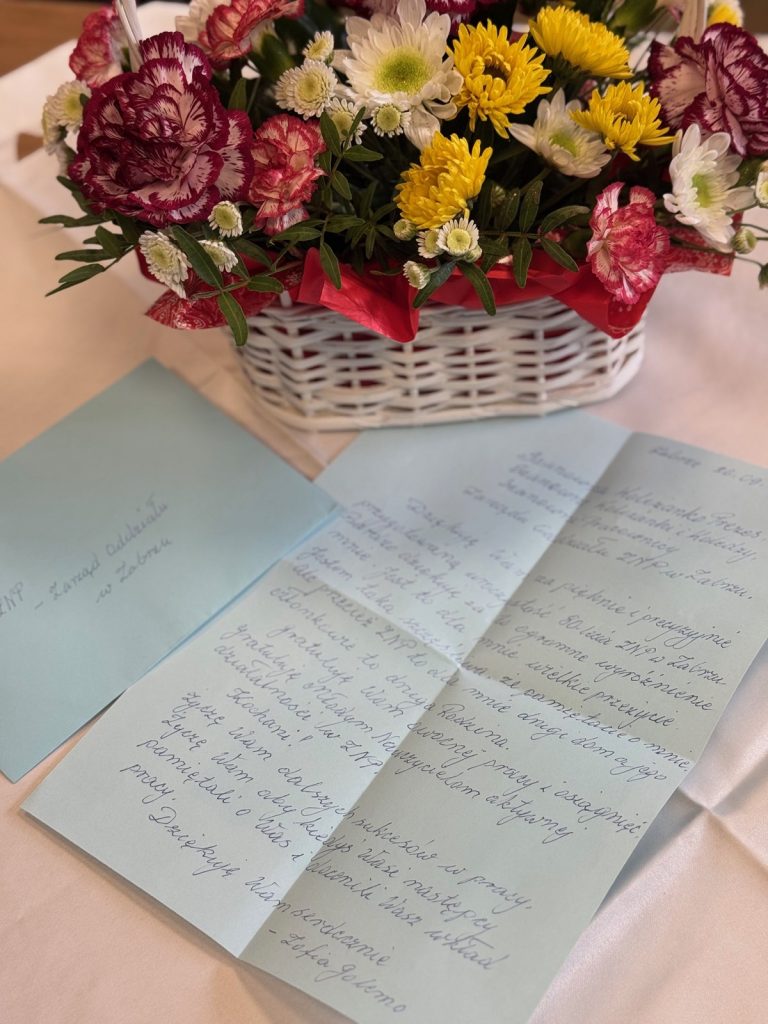 ZNP
- Zarząd Oddziału
w Zabrzu
Zabrze 20.09.
Koleżanko Prezes
Koleżanki i Koledzy,
Zarządu Oddziału ZNP w Zabrzu.
Dziękuję za pięknie i precyzyjnie
przygotowaną uroczystość 80 lecia ZNP w Zabrzu.
dziękuję za to ogromne wyróżnienie
mnie. Jest to dla mnie wielkie przeżycie
Jestem taka szczęśliwa że pamiętacie o mnie,
ale przecież ZNP to dla mnie drugi dom a jego
członkowie to druga Rodzina.
gratuluję Wam owocnej pracy i osiągnięć
gratuluję młodym Nauczycielom aktywnej
działalności w ZNP.
Kochani!
Życzę Wam dalszych sukcesów w pracy.
Życzę Wam aby kiedyś Wasi następcy
pamiętali o Was i docenili Wasz wkład
pracy.
Dziękuję Wam serdecznie
- Zofia Golemo